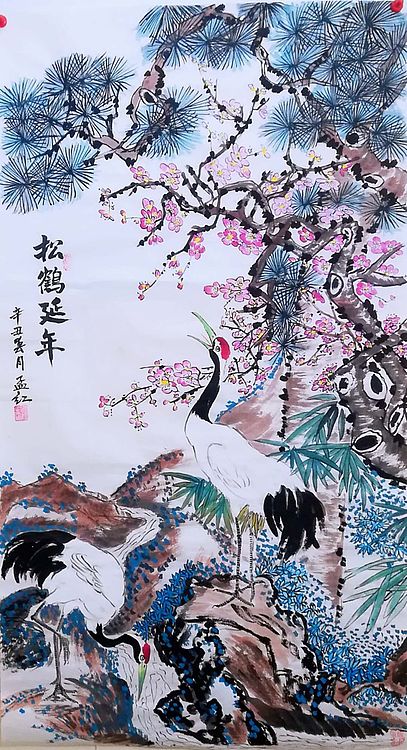 松鹤延年
辛丑春月孟红